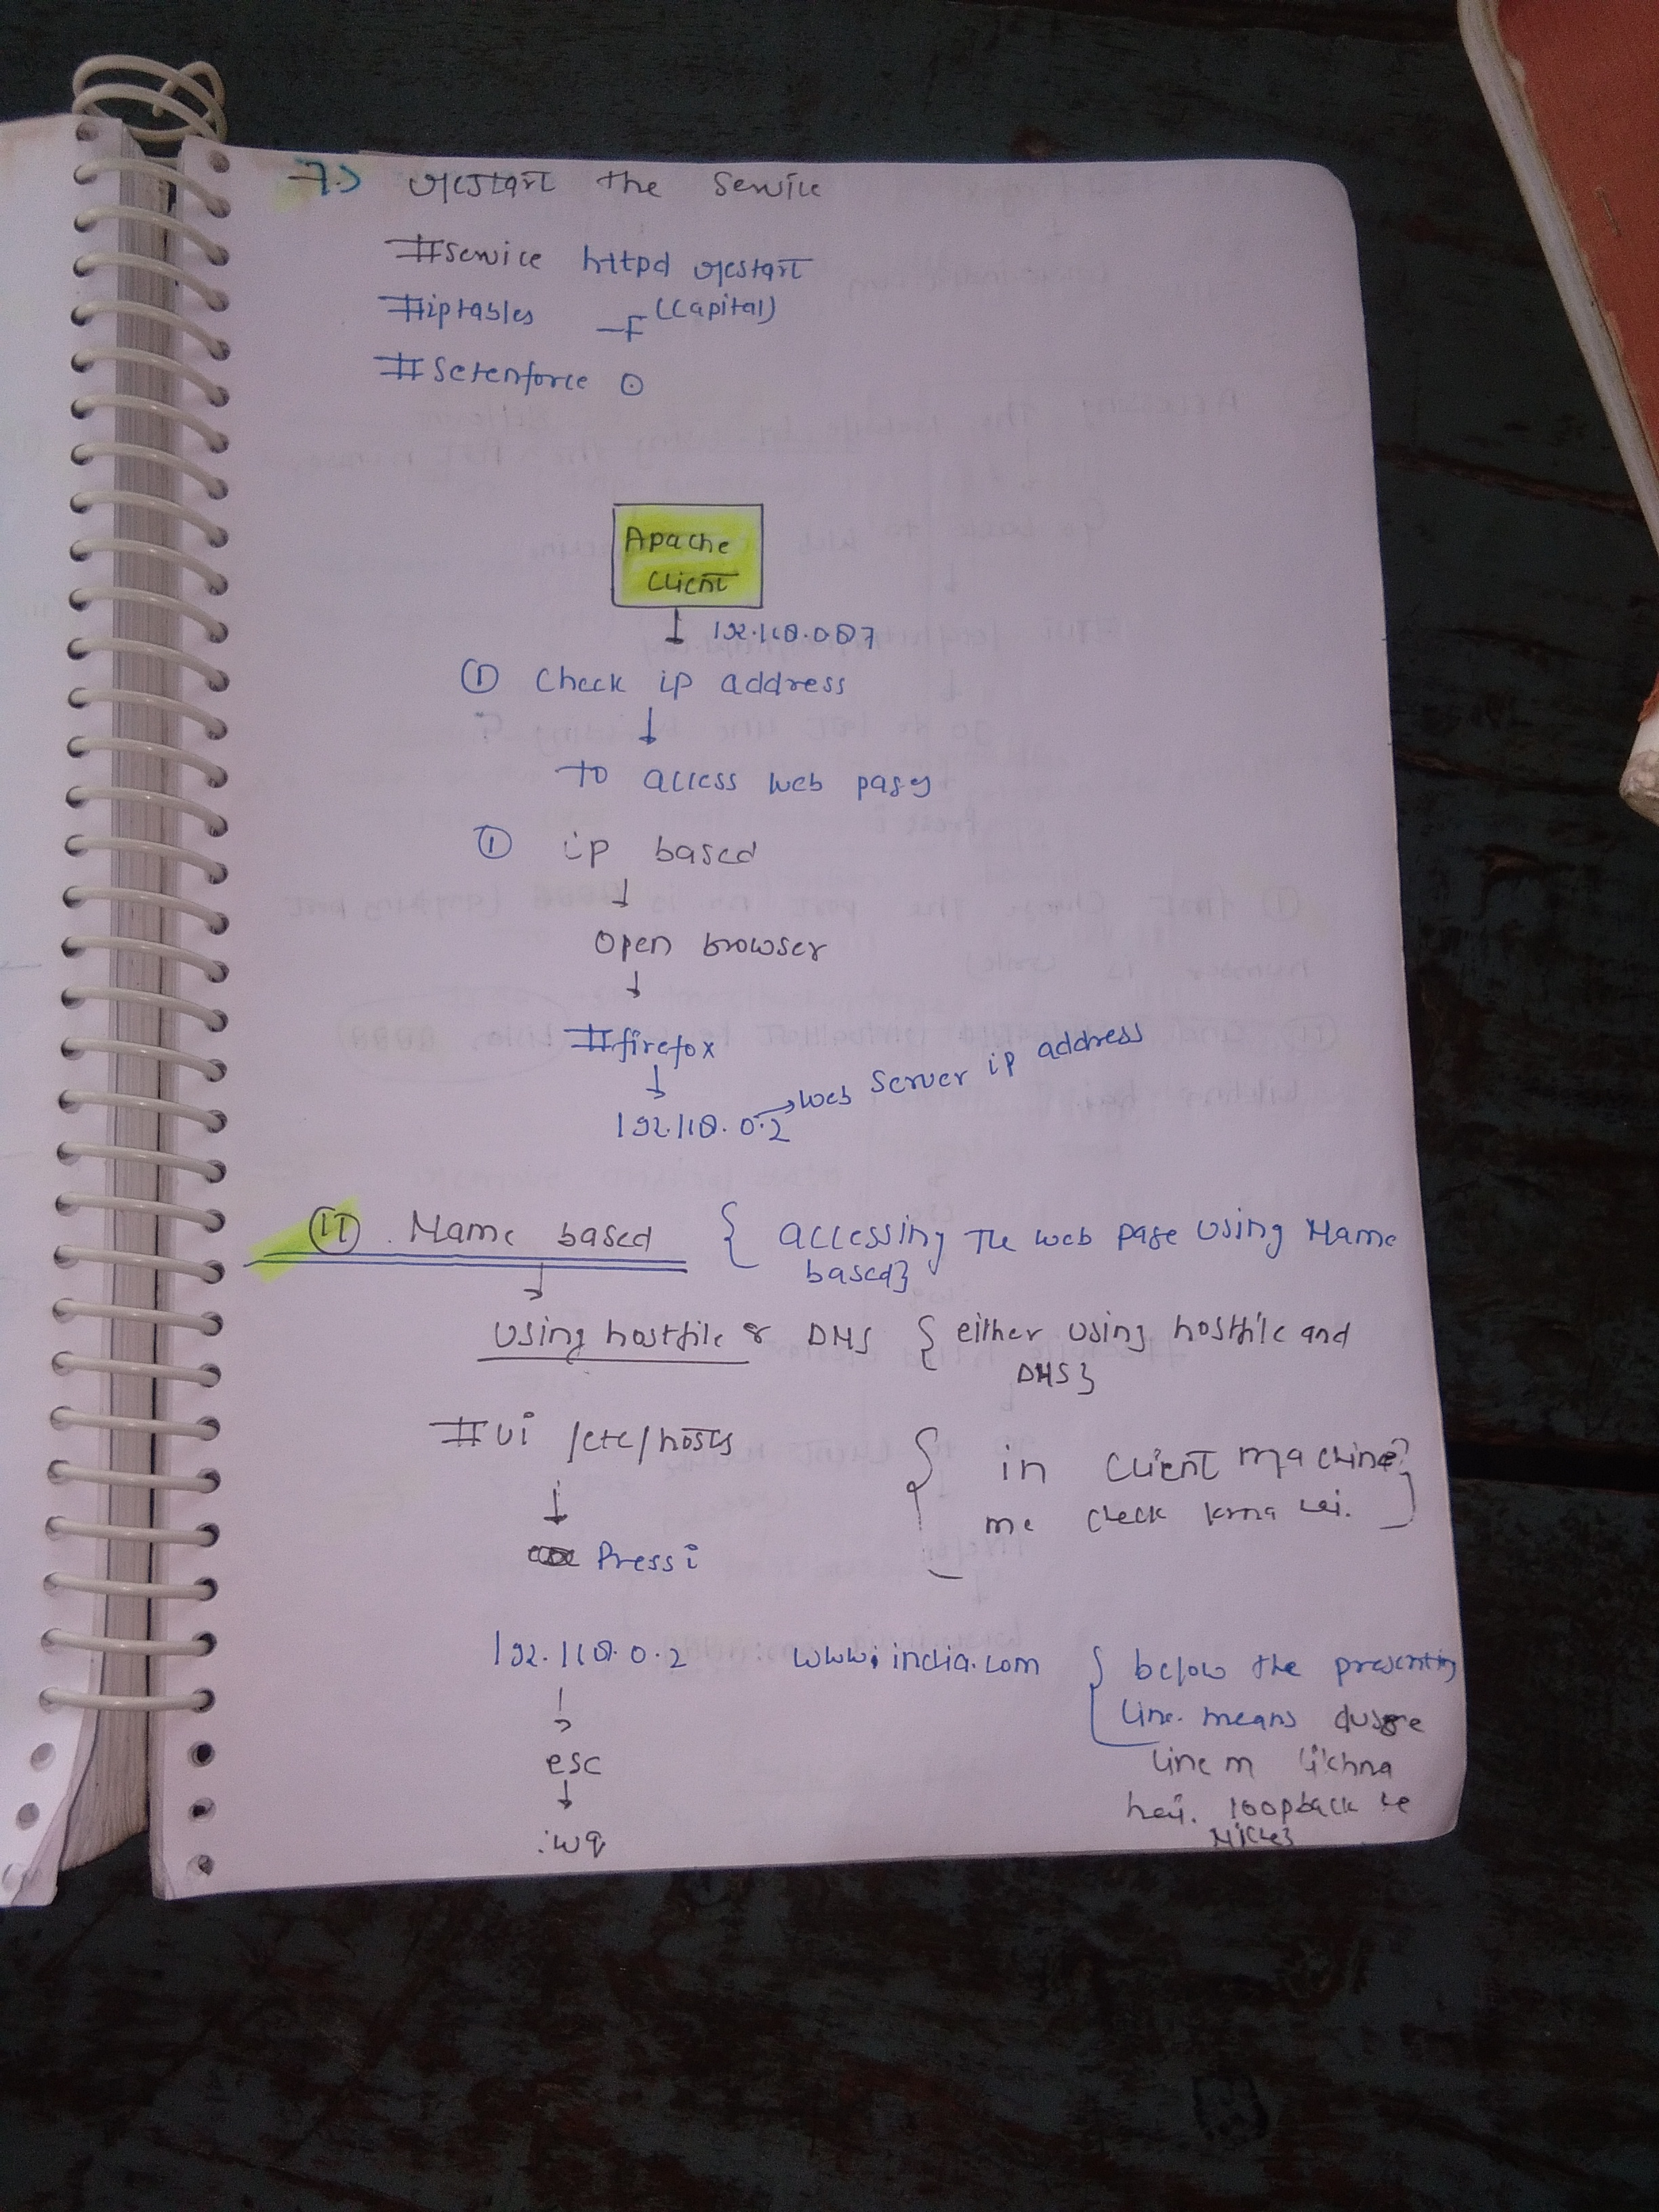 7.) restart the service
#service httpd restart
#iptables -F (capital)
#setenforce 0
Apache
Client
① Check ip address
to access web page
① ip based
Open browser
#firefox
192.168.0.2 → web server ip address
II Name based { accessing the web page using Name
based}
Using hostfile & DNS { either using hostfile and
DNS}
#vi /etc/hosts { in client machine
me check krna hei. }
Press i
192.168.0.2 www.india.com { below the presenting
line. means dusre
line m likhna
hei. loopback ke
Niche}
esc
:wq